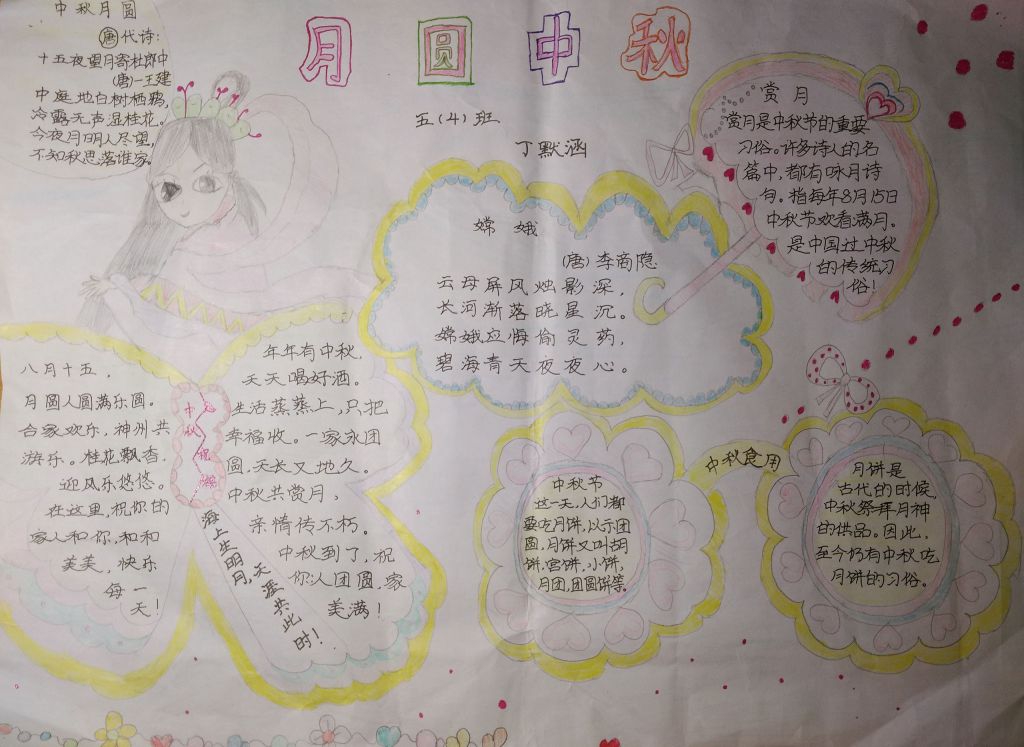 月圆中秋
五(4)班
丁默涵
中秋月圆
唐代诗:
十五夜望月寄杜郎中
(唐)一王建
中庭地白树栖鸦,
冷露无声湿桂花。
今夜月明人尽望,
不知秋思落谁家。
嫦娥
(唐)李商隐
云母屏风烛影深,
长河渐落晓星沉。
嫦娥应悔偷灵药,
碧海青天夜夜心。
赏月
赏月是中秋节的重要
习俗。许多诗人的名
篇中,都有咏月诗
句。指每年8月15日
中秋节欢看满月。
是中国过中秋
的传统习
俗!
八月十五,
月圆人圆满乐圆。
合家欢乐,神州共
游乐。桂花飘香,
迎风乐悠悠。
在这里,祝你的
家人和你,和和
美美,快乐
每一
天!
中秋
年年有中秋,
天天喝好酒。
生活蒸蒸上,只把
幸福收。一家永团
圆,天长又地久。
中秋共赏月,
亲情传不朽。
中秋到了,祝
你人团圆,家
美满!
海上生明月,天涯共此时!
中秋食用
中秋节
这一天,人们都
要吃月饼,以示团
圆,月饼又叫胡
饼,宫饼,小饼,
月团,团圆饼等。
月饼是
古代的时候,
中秋祭拜月神
的供品。因此,
至今仍有中秋吃
月饼的习俗。